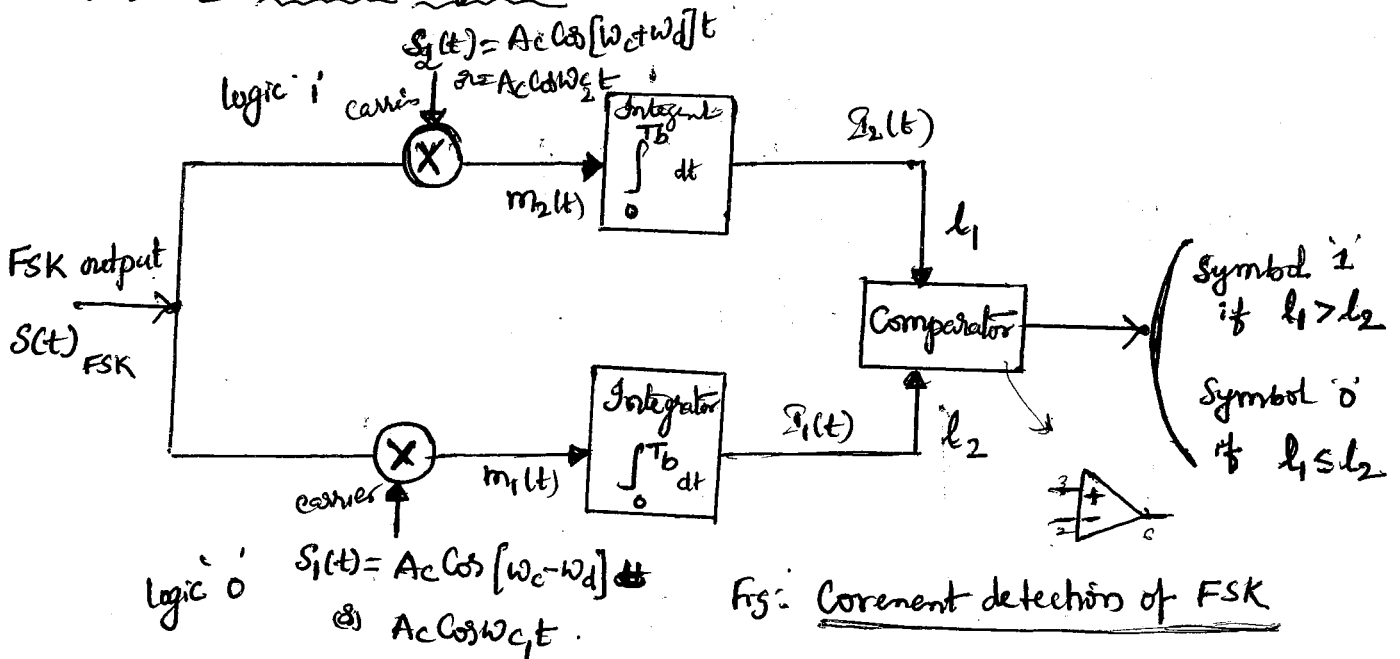 S₂(t) = Ac Cos [Wc+Wd]t
logic '1'
carrier
= Ac Cos Wc₂ t
Integrat
∫₀^Tb dt
m₂(t)
I₂(t)
l₁
FSK output
S(t) FSK
Comparator
Symbol '1'
if l₁ > l₂
Symbol '0'
if l₁ ≤ l₂
Integrator
∫₀^Tb dt
m₁(t)
I₁(t)
l₂
carrier
X
X
3 +
2 -
6
logic '0'
S₁(t) = Ac Cos [Wc-Wd]
(or) Ac Cos Wc₁t .
Fig: Corenent detection of FSK